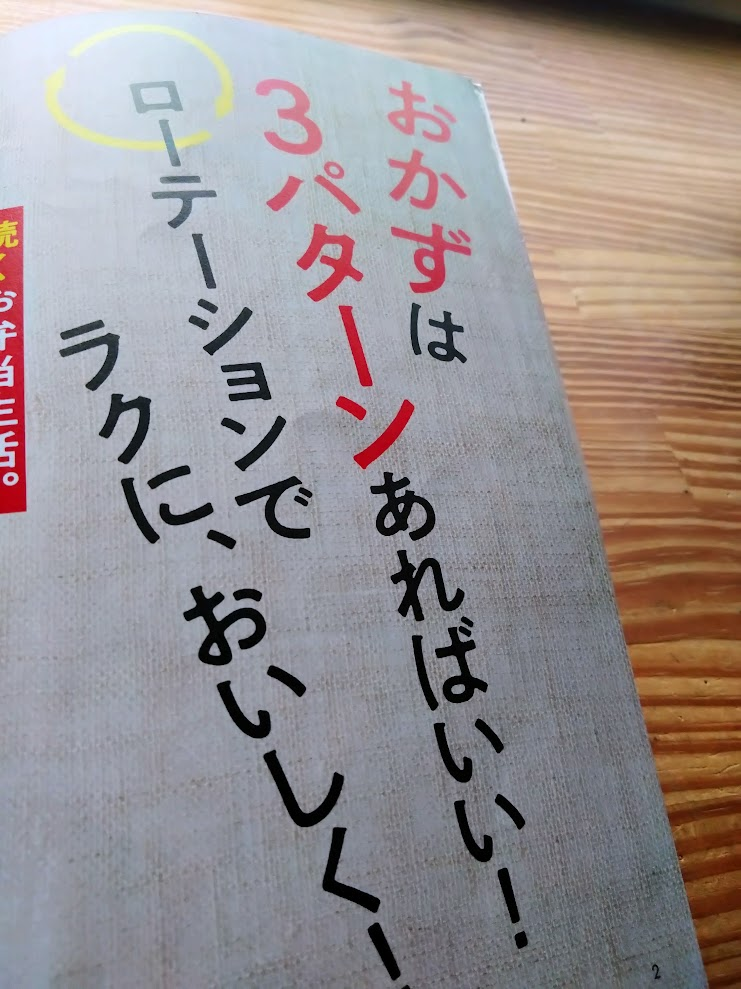 おかずは
3パターンあればいい!
ローテーションで
ラクに、おいしく!
続くお弁当生活。
2